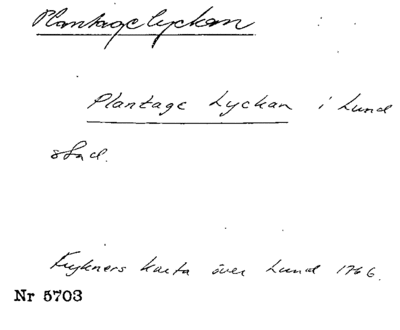 Plantagelyckan
Plantage Lyckan i Lund
stad.
Frykners karta över Lund 1766.
Nr 5703